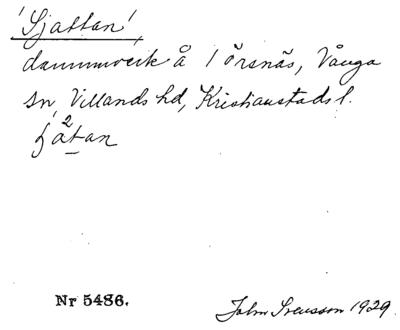 'Sjattan'
dammvik å 1 Örsnäs, Vånga
sn, Villands hd, Kristianstads l.
2
Nr 5486.
John Svensson 1929.